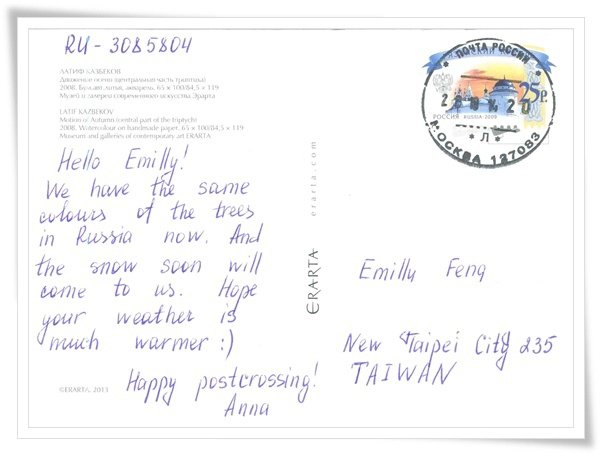 RU - 3085804
ЛАТИФ КАЗБЕКОВ
Движение осени (центральная часть триптиха)
2008. Бум.авт.литья, акварель, 65 x 100/84,5 x 119
Музей и галереи современного искусства Эрарта
LATIF KAZBEKOV
Motion of Autumn (central part of the triptych)
2008. Watercolour on handmade paper, 65 x 100/84,5 x 119
Museum and galleries of contemporary art ERARTA
Hello Emilly!
We have the same
colours of the trees
in Russia now. And
the snow soon will
come to us. Hope
your weather is
much warmer :)
Happy postcrossing!
Anna
©ERARTA, 2013
ERARTA
erarta.com
ПОЧТА РОССИИ
25 р.
РОССИЯ RUSSIA · 2009
* Л *
МОСКВА 127083
Emilly Feng
New Taipei City 235
TAIWAN